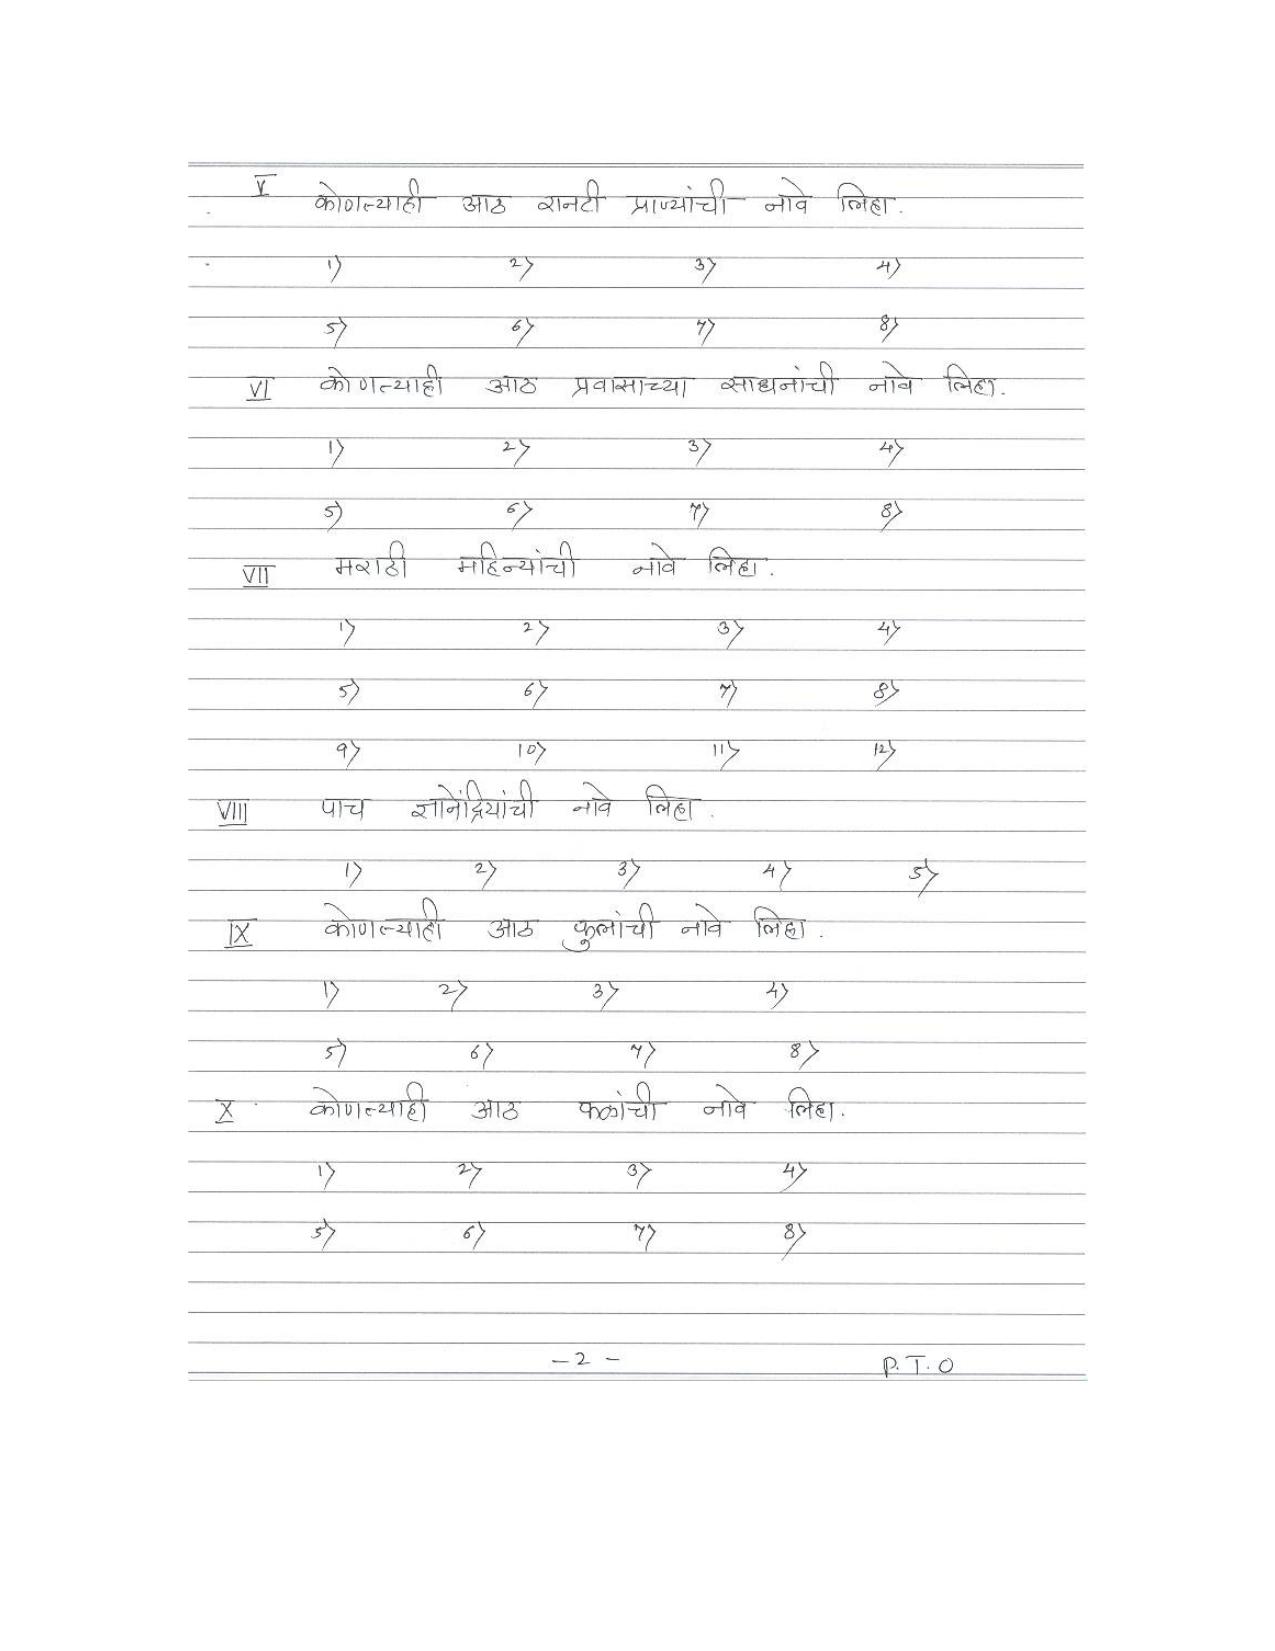 V कोणत्याही आठ रानटी प्राण्यांची नावे लिहा.
1) 2) 3) 4)
5) 6) 7) 8)
VI कोणत्याही आठ प्रवासाच्या साधनांची नावे लिहा.
1) 2) 3) 4)
5) 6) 7) 8)
VII मराठी महिन्यांची नावे लिहा.
1) 2) 3) 4)
5) 6) 7) 8)
9) 10) 11) 12)
VIII पाच ज्ञानेंद्रियांची नावे लिहा.
1) 2) 3) 4) 5)
IX कोणत्याही आठ फुलांची नावे लिहा.
1) 2) 3) 4)
5) 6) 7) 8)
X कोणत्याही आठ फळांची नावे लिहा.
1) 2) 3) 4)
5) 6) 7) 8)
-2- P.T.O